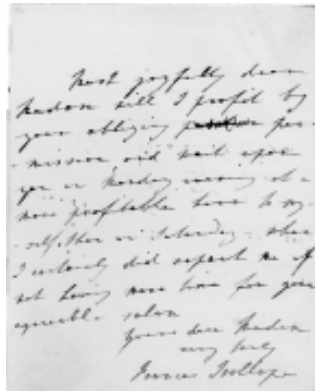 Most joyfully dear
Madam will I profit by
your obliging per-
-mission and wait upon
you on Monday evening at a
more profitable hour to my-
-self, than on Saturday - when
I certainly did repent me of
not having more time for your
agreeable salon
Yours dear Madam
very truly
Frances Trollope